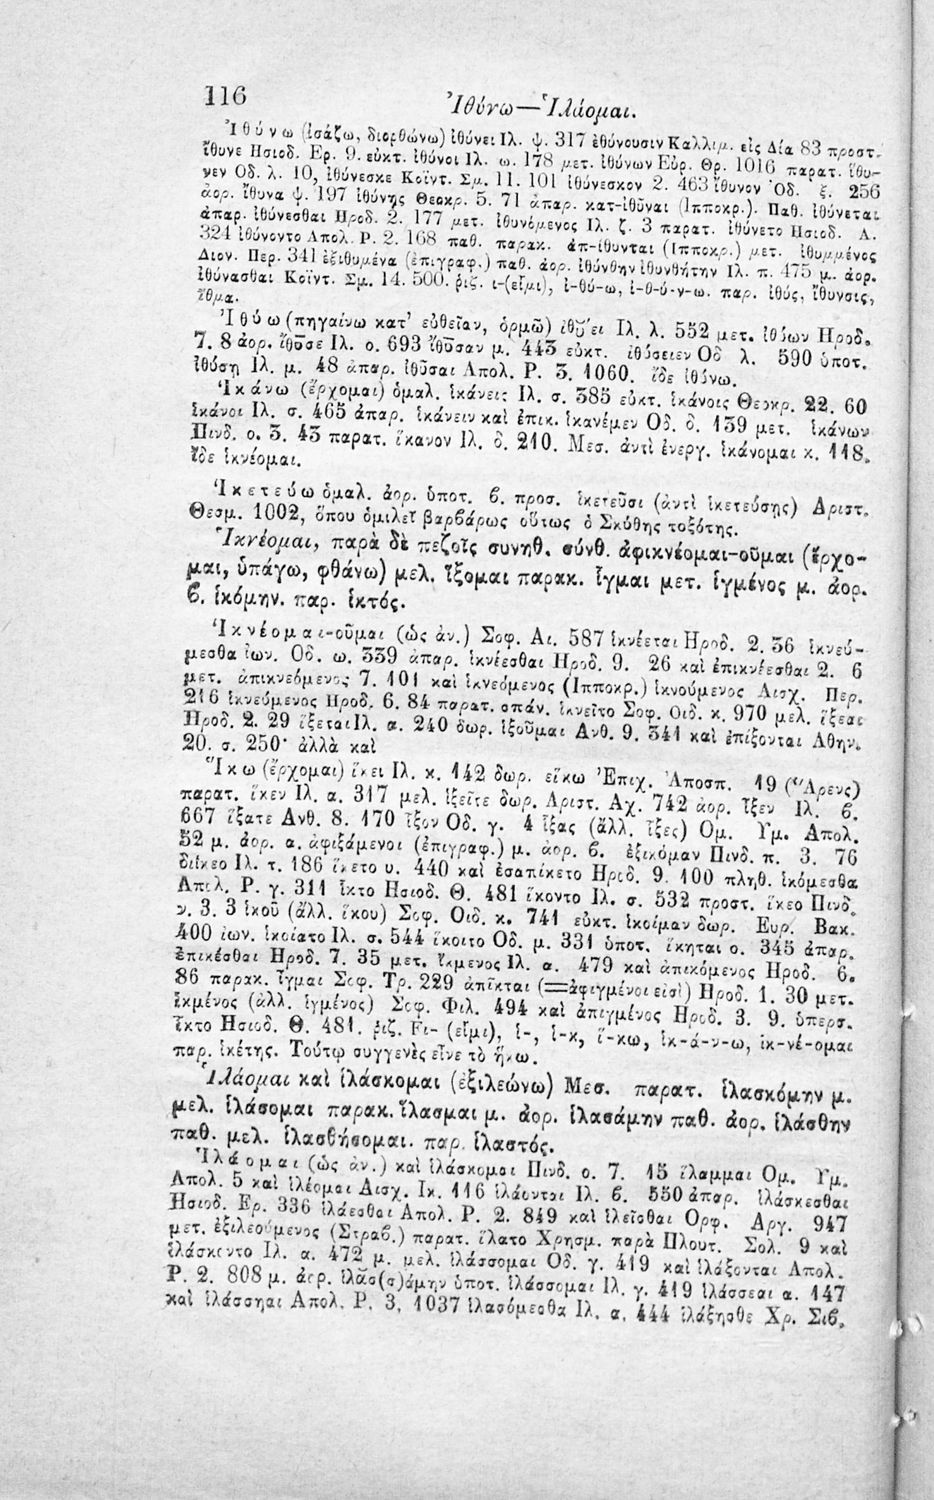 116
Ἰθύνω—Ἱλάομαι.
Ἰθύνω (ἰσάζω, διορθώνω) ἰθύνει Ιλ. ψ. 317 ἐθύνουσιν Καλλιμ. εἰς Δία 83 προστ.
ἴθυνε Ησιοδ. Ερ. 9. εὐκτ. ἰθύνοι Ιλ. ω. 178 μετ. ἰθύνων Εὐρ. Θρ. 1016 παρατ. ἴθυ-
νεν Οδ. λ. 10, ἰθύνεσκε Κοϊντ. Σμ. 11. 101 ἰθύνεσκον 2. 463 ἴθυνον Ὀδ. ξ. 256
ἀορ. ἴθυνα ψ. 197 ἰθύνῃς Θεοκρ. 5. 71 ἀπαρ. κατ-ἰθῦναι (Ιπποκρ.). Παθ. ἰθύνεται
ἀπαρ. ἰθύνεσθαι Ηροδ. 2. 177 μετ. ἰθυνόμενος Ιλ. ζ. 3 παρατ. ἰθύνετο Ησιοδ. Α.
324 ἰθύνοντο Απολ. Ρ. 2. 168 παθ. παρακ. ἀπ-ίθυνται (Ιπποκρ.) μετ. ἰθυμμένος
Διον. Περ. 341 ἐξιθυμένα (ἐπιγραφ.) παθ. ἀορ. ἰθύνθην ἰθυνθήτην Ιλ. π. 475 μ. ἀορ.
ἰθύνασθαι Κοϊντ. Σμ. 14. 500. ῥιζ. ι-(εἶμι), ἰ-θύ-ω, ἰ-θ-ύ-ν-ω. παρ. ἰθύς, ἴθυνσις,
ἴθμα.
Ἰθύω (πηγαίνω κατ’ εὐθεῖαν, ὁρμῶ) ἰθύει Ιλ. λ. 552 μετ. ἰθύων Ηροδ.
7. 8 ἀορ. ἴθυσε Ιλ. ο. 693 ἴθυσαν μ. 443 εὐκτ. ἰθύσειεν Οδ λ. 590 ὑποτ.
ἰθύσῃ Ιλ. μ. 48 ἀπαρ. ἰθῦσαι Απολ. Ρ. 3. 1060. ἴδε ἰθύνω.
Ἱκάνω (ἔρχομαι) ὁμαλ. ἱκάνεις Ιλ. σ. 385 εὐκτ. ἱκάνοις Θεοκρ. 22. 60
ἱκάνοι Ιλ. σ. 465 ἀπαρ. ἱκάνειν καὶ ἐπικ. ἱκανέμεν Οδ. δ. 139 μετ. ἱκάνων
Πινδ. ο. 3. 43 παρατ. ἵκανον Ιλ. δ. 210. Μεσ. ἀντὶ ἐνεργ. ἱκάνομαι κ. 118.
ἴδε ἱκνέομαι.
Ἱκετεύω ὁμαλ. ἀορ. ὑποτ. ϐ. προσ. ἱκετεῦσι (ἀντὶ ἱκετεύσῃς) Αριστ.
Θεσμ. 1002, ὅπου ὁμιλεῖ βαρϐάρως οὕτως ὁ Σκύθης τοξότης.
Ἱκνέομαι, παρὰ δὲ πεζοῖς συνηθ. σύνθ. ἀφικνέομαι-οῦμαι (ἔρχο-
μαι, ὑπάγω, φθάνω) μελ. ἵξομαι παρακ. ἷγμαι μετ. ἱγμένος μ. ἀορ.
ϐ. ἱκόμην. παρ. ἱκτός.
Ἱκνέομαι-οῦμαι (ὡς ἀν.) Σοφ. Αι. 587 ἱκνέεται Ηροδ. 2. 36 ἱκνεύ-
μεσθα ἰων. Οδ. ω. 339 ἀπαρ. ἱκνέεσθαι Ηροδ. 9. 26 καὶ ἐπικνέεσθαι 2. 6
μετ. ἀπικνεόμενος 7. 101 καὶ ἱκνεόμενος (Ιπποκρ.) ἱκνούμενος Αισχ. Περ.
216 ἱκνεύμενος Ηροδ. 6. 84 παρατ. σπάν. ἱκνεῖτο Σοφ. Οιδ. κ. 970 μελ. ἵξεαι
Ηροδ. 2. 29 ἵξεται Ιλ. α. 240 δωρ. ἱξοῦμαι Ανθ. 9. 341 καὶ ἐπίξονται Αθην.
20. σ. 250· ἀλλὰ καὶ
Ἵκω (ἔρχομαι) ἵκει Ιλ. κ. 142 δωρ. εἵκω Ἐπιχ. Ἀποσπ. 19 (Ἄρενς)
παρατ. ἵκεν Ιλ. α. 317 μελ. ἱξεῖτε δωρ. Αριστ. Αχ. 742 ἀορ. ἷξεν Ιλ. ϐ.
667 ἵξατε Ανθ. 8. 170 ἷξον Οδ. γ. 4 ἷξας (ἄλλ. ἷξες) Ομ. Υμ. Απολ.
52 μ. ἀορ. α. ἀφιξάμενοι (ἐπιγραφ.) μ. ἀορ. ϐ. ἐξικόμαν Πινδ. π. 3. 76
διίκεο Ιλ. τ. 186 ἵκετο υ. 440 καὶ ἐσαπίκετο Ηροδ. 9. 100 πληθ. ἱκόμεσθα
Απολ. Ρ. γ. 311 ἷκτο Ησιοδ. Θ. 481 ἵκοντο Ιλ. σ. 532 προστ. ἵκεο Πινδ.
ν. 3. 3 ἱκοῦ (ἄλλ. ἵκου) Σοφ. Οιδ. κ. 741 εὐκτ. ἱκοίμαν δωρ. Ευρ. Βακ.
400 ἰων. ἱκοίατο Ιλ. σ. 544 ἵκοιτο Οδ. μ. 331 ὑποτ. ἵκηται ο. 345 ἀπαρ.
ἐπικέσθαι Ηροδ. 7. 35 μετ. ἴκμενος Ιλ. α. 479 καὶ ἀπικόμενος Ηροδ. 6.
86 παρακ. ἷγμαι Σοφ. Τρ. 229 ἀπῖκται (=ἀφιγμένοι εἰσὶ) Ηροδ. 1. 30 μετ.
ἱκμένος (ἀλλ. ἱγμένος) Σοφ. Φιλ. 494 καὶ ἀπιγμένος Ηροδ. 3. 9. ὑπερσ.
ἷκτο Ησιοδ. Θ. 481. ῥιζ. Fι- (εἶμι), ἱ-, ἱ-κ, ἵ-κω, ἱκ-ά-ν-ω, ἱκ-νέ-ομαι
παρ. ἱκέτης. Τούτῳ συγγενὲς εἶνε τὸ ἥκω.
Ἱλάομαι καὶ ἱλάσκομαι (ἐξιλεώνω) Μεσ. παρατ. ἱλασκόμην μ.
μελ. ἱλάσομαι παρακ. ἵλασμαι μ. ἀορ. ἱλασάμην παθ. ἀορ. ἱλάσθην
παθ. μελ. ἱλασθήσομαι. παρ. ἱλαστός.
Ἱλάομαι (ὡς ἀν.) καὶ ἱλάσκομαι Πινδ. ο. 7. 15 ἵλαμμαι Ομ. Υμ.
Απολ. 5 καὶ ἱλέομαι Αισχ. Ικ. 116 ἱλάονται Ιλ. ϐ. 550 ἀπαρ. ἱλάσκεσθαι
Ησιοδ. Ερ. 336 ἱλάεσθαι Απολ. Ρ. 2. 849 καὶ ἱλεῖσθαι Ορφ. Αργ. 947
μετ. ἐξιλεούμενος (Στραϐ.) παρατ. ἵλατο Χρησμ. παρὰ Πλουτ. Σολ. 9 καὶ
ἱλάσκοντο Ιλ. α. 472 μ. μελ. ἱλάσσομαι Οδ. γ. 419 καὶ ἱλάξονται Απολ.
Ρ. 2. 808 μ. ἀορ. ἱλασ(σ)άμην ὑποτ. ἱλάσσομαι Ιλ. γ. 419 ἱλάσσεαι α. 147
καὶ ἱλάσσηαι Απολ. Ρ. 3. 1037 ἱλασόμεσθα Ιλ. α. 444 ἱλάξησθε Χρ. Σιϐ.